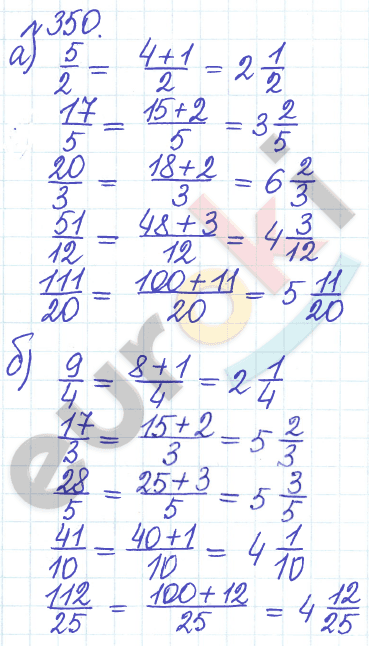 350.
а) 5/2 = (4+1)/2 = 2 1/2
17/5 = (15+2)/5 = 3 2/5
20/3 = (18+2)/3 = 6 2/3
51/12 = (48+3)/12 = 4 3/12
111/20 = (100+11)/20 = 5 11/20
б) 9/4 = (8+1)/4 = 2 1/4
17/3 = (15+2)/3 = 5 2/3
28/5 = (25+3)/5 = 5 3/5
41/10 = (40+1)/10 = 4 1/10
112/25 = (100+12)/25 = 4 12/25
euroki